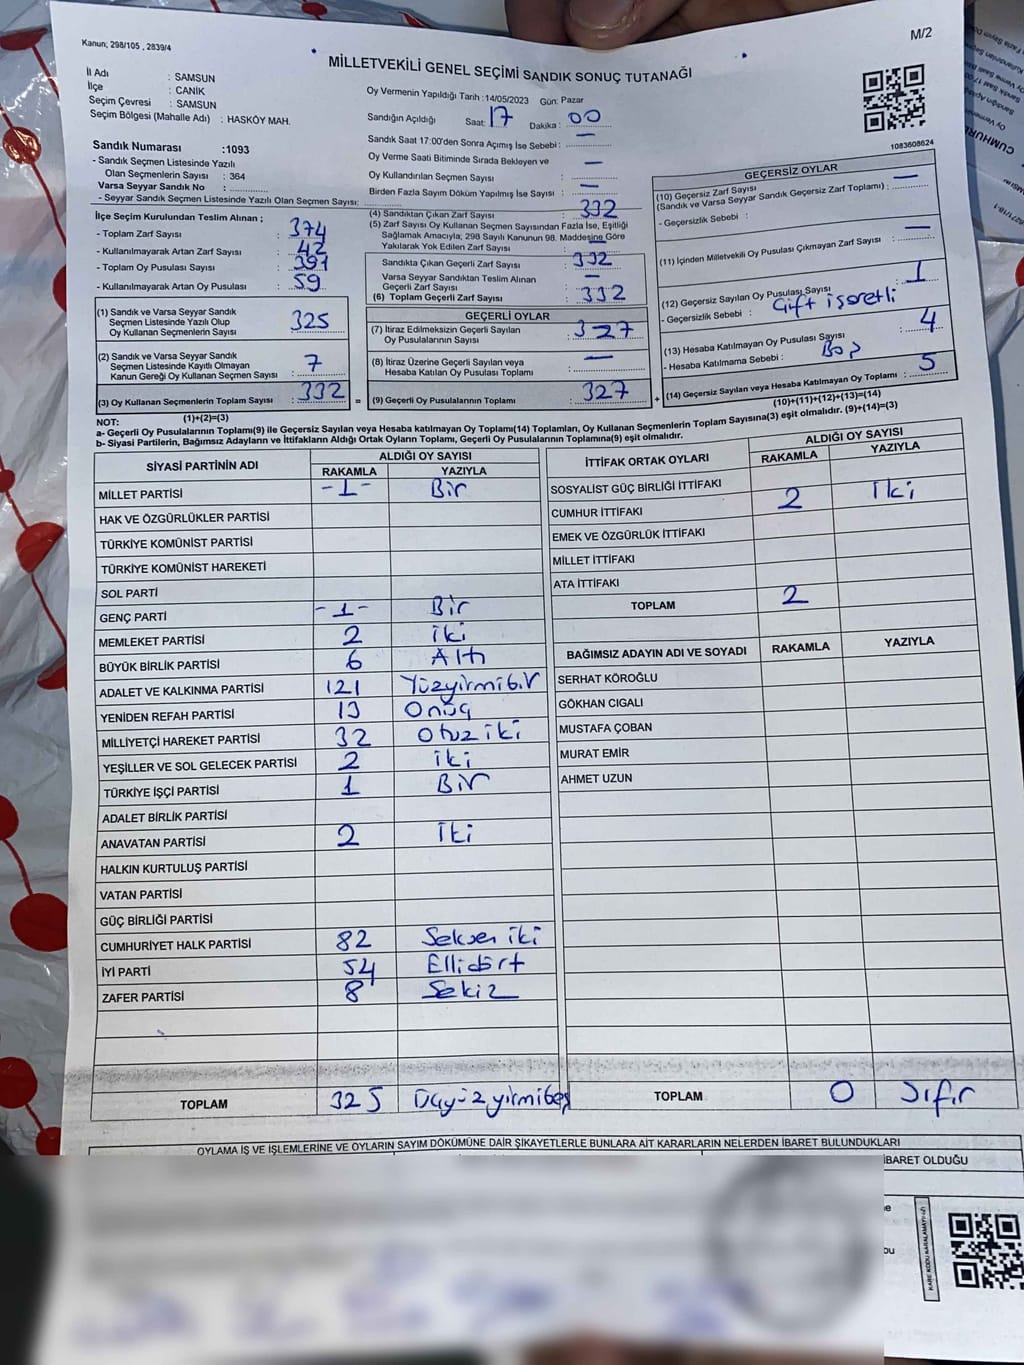 Kanun; 298/105 , 2839/4
M/2
MİLLETVEKİLİ GENEL SEÇİMİ SANDIK SONUÇ TUTANAĞI
İl Adı : SAMSUN
İlçe : CANİK
Seçim Çevresi : SAMSUN
Seçim Bölgesi (Mahalle Adı) : HASKÖY MAH.
Sandık Numarası :1093
- Sandık Seçmen Listesinde Yazılı
Olan Seçmenlerin Sayısı : 364
Varsa Seyyar Sandık No :
- Seyyar Sandık Seçmen Listesinde Yazılı Olan Seçmen Sayısı:
Oy Vermenin Yapıldığı Tarih :14/05/2023 Gün: Pazar
Sandığın Açıldığı Saat: 17 Dakika : 00
Sandık Saat 17:00'den Sonra Açımış İse Sebebi : —
Oy Verme Saati Bitiminde Sırada Bekleyen ve
Oy Kullandırılan Seçmen Sayısı : —
Birden Fazla Sayım Döküm Yapılmış İse Sayısı : —
1083608624
İlçe Seçim Kurulundan Teslim Alınan ;
- Toplam Zarf Sayısı : 374
- Kullanılmayarak Artan Zarf Sayısı : 42
- Toplam Oy Pusulası Sayısı : 391
- Kullanılmayarak Artan Oy Pusulası : 59
(1) Sandık ve Varsa Seyyar Sandık
Seçmen Listesinde Yazılı Olup
Oy Kullanan Seçmenlerin Sayısı : 325
(2) Sandık ve Varsa Seyyar Sandık
Seçmen Listesinde Kayıtlı Olmayan
Kanun Gereği Oy Kullanan Seçmen Sayısı : 7
(3) Oy Kullanan Seçmenlerin Toplam Sayısı : 332 =
(1)+(2)=(3)
(4) Sandıktan Çıkan Zarf Sayısı : 332
(5) Zarf Sayısı Oy Kullanan Seçmen Sayısından Fazla İse, Eşitliği
Sağlamak Amacıyla; 298 Sayılı Kanunun 98. Maddesine Göre
Yakılarak Yok Edilen Zarf Sayısı : —
Sandıkta Çıkan Geçerli Zarf Sayısı : 332
Varsa Seyyar Sandıktan Teslim Alınan
Geçerli Zarf Sayısı : —
(6) Toplam Geçerli Zarf Sayısı : 332
GEÇERLİ OYLAR
(7) İtiraz Edilmeksizin Geçerli Sayılan
Oy Pusulalarının Sayısı : 327
(8) İtiraz Üzerine Geçerli Sayılan veya
Hesaba Katılan Oy Pusulası Toplamı : —
(9) Geçerli Oy Pusulalarının Toplamı : 327 +
GEÇERSİZ OYLAR
(10) Geçersiz Zarf Sayısı
(Sandık ve Varsa Seyyar Sandık Geçersiz Zarf Toplamı) : —
- Geçersizlik Sebebi :
(11) İçinden Milletvekili Oy Pusulası Çıkmayan Zarf Sayısı : —
(12) Geçersiz Sayılan Oy Pusulası Sayısı : 1
- Geçersizlik Sebebi : Çift işaretli
(13) Hesaba Katılmayan Oy Pusulası Sayısı : 4
- Hesaba Katılmama Sebebi : Boş
(14) Geçersiz Sayılan veya Hesaba Katılmayan Oy Toplamı : 5
(10)+(11)+(12)+(13)=(14)
NOT:
a- Geçerli Oy Pusulalarının Toplamı(9) ile Geçersiz Sayılan veya Hesaba Katılmayan Oy Toplamı(14) Toplamları, Oy Kullanan Seçmenlerin Toplam Sayısına(3) eşit olmalıdır. (9)+(14)=(3)
b- Siyasi Partilerin, Bağımsız Adayların ve İttifakların Aldığı Ortak Oyların Toplamı, Geçerli Oy Pusulalarının Toplamına(9) eşit olmalıdır.
SİYASİ PARTİNİN ADI ALDIĞI OY SAYISI
RAKAMLA YAZIYLA
MİLLET PARTİSİ -1- Bir
HAK VE ÖZGÜRLÜKLER PARTİSİ
TÜRKİYE KOMÜNİST PARTİSİ
TÜRKİYE KOMÜNİST HAREKETİ
SOL PARTİ
GENÇ PARTİ -1- Bir
MEMLEKET PARTİSİ 2 iki
BÜYÜK BİRLİK PARTİSİ 6 Altı
ADALET VE KALKINMA PARTİSİ 121 Yüzyirmibir
YENİDEN REFAH PARTİSİ 13 Onüç
MİLLİYETÇİ HAREKET PARTİSİ 32 Otuz iki
YEŞİLLER VE SOL GELECEK PARTİSİ 2 iki
TÜRKİYE İŞÇİ PARTİSİ 1 Bir
ADALET BİRLİK PARTİSİ
ANAVATAN PARTİSİ 2 İki
HALKIN KURTULUŞ PARTİSİ
VATAN PARTİSİ
GÜÇ BİRLİĞİ PARTİSİ
CUMHURİYET HALK PARTİSİ 82 Seksen iki
İYİ PARTİ 54 Ellidört
ZAFER PARTİSİ 8 Sekiz
TOPLAM 325 Üçyüzyirmibeş
İTTİFAK ORTAK OYLARI ALDIĞI OY SAYISI
RAKAMLA YAZIYLA
SOSYALİST GÜÇ BİRLİĞİ İTTİFAKI
CUMHUR İTTİFAKI 2 İki
EMEK VE ÖZGÜRLÜK İTTİFAKI
MİLLET İTTİFAKI
ATA İTTİFAKI
TOPLAM 2
BAĞIMSIZ ADAYIN ADI VE SOYADI RAKAMLA YAZIYLA
SERHAT KÖROĞLU
GÖKHAN CIGALI
MUSTAFA ÇOBAN
MURAT EMİR
AHMET UZUN
TOPLAM 0 Sıfır
OYLAMA İŞ VE İŞLEMLERİNE VE OYLARIN SAYIM DÖKÜMÜNE DAİR ŞİKAYETLERLE BUNLARA AİT KARARLARIN NELERDEN İBARET BULUNDUKLARI
İBARET OLDUĞU
KARE KODU KARALAMAYINIZ